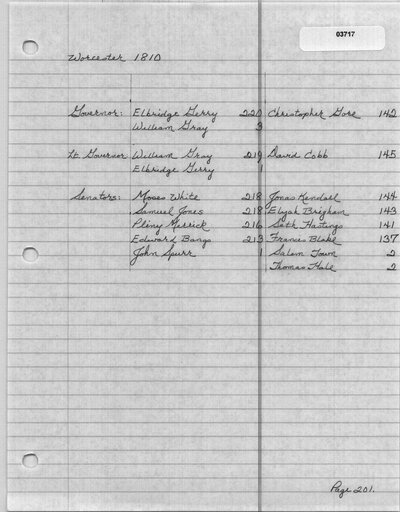 03717
Worcester 1810
Governor: Elbridge Gerry 220 Christopher Gore 142
William Gray 3
Lt. Governor William Gray 219 David Cobb 145
Elbridge Gerry 1
Senators: Moses White 218 Jonas Kendall 144
Samuel Jones 218 Elijah Brigham 143
Pliny Merrick 216 Seth Hastings 141
Edward Bangs 213 Francis Blake 137
John Spurr 1 Salem Town 2
Thomas Hale 2
Page 201.